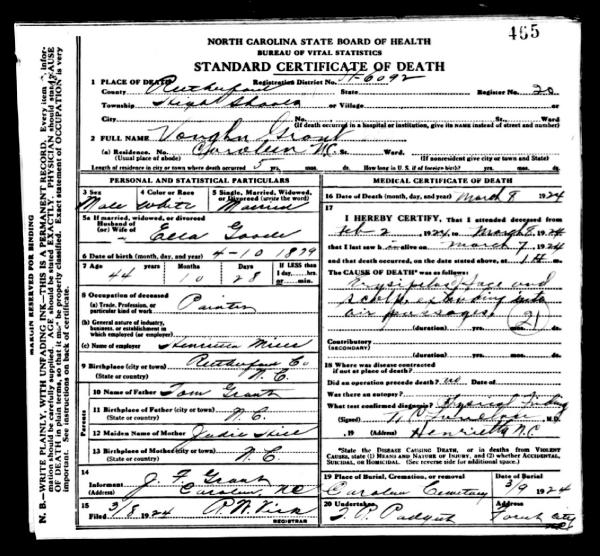 465
NORTH CAROLINA STATE BOARD OF HEALTH
BUREAU OF VITAL STATISTICS
STANDARD CERTIFICATE OF DEATH
1 PLACE OF DEATH Registration District No. 81-6092
County Rutherford State Register No. 20
Township High Shoals or Village or
City No. St. Ward
(If death occurred in a hospital or institution, give its NAME instead of street and number)
2 FULL NAME Vaughn Grant
(a) Residence. No. Caroleen N.C. St. Ward
(Usual place of abode) (If nonresident give city or town and State)
Length of residence in city or town where death occurred 5 yrs. mos. ds. How long in U.S. if of foreign birth? yrs. mos. ds.
PERSONAL AND STATISTICAL PARTICULARS
3 Sex 4 Color or Race 5 Single, Married, Widowed, or Divorced (write the word)
Male White Married
5a If married, widowed, or divorced
Husband of
(or) Wife of Ella
6 Date of birth (month, day, and year) 4-10 1879
7 Age Months Days IF LESS than
1 day, hrs.
44 10 28 or min.
8 Occupation of deceased
(a) Trade, Profession, or particular kind of work Painter
(b) General nature of industry, business, or establishment in which employed (or employer)
(c) Name of employer Henrietta Mills
9 Birthplace (city or town) Rutherford Co
(State or country) N.C.
10 Name of Father Tom Grant
11 Birthplace of Father (city or town)
(State or country) N.C.
12 Maiden Name of Mother Judie
13 Birthplace of Mother (city or town)
(State or country) N.C.
Parents
14
Informant J. F. Grant
(Address) Caroleen, NC
15
Filed 3/8 1924 R.W. Kirk
REGISTRAR
MEDICAL CERTIFICATE OF DEATH
16 Date of Death (month, day, and year) March 8 1924
17
I HEREBY CERTIFY, That I attended deceased from
Feb 2 1924, to March 8, 1924
that I last saw h alive on March 7, 1924
and that death occurred, on the date stated above, at m.
The CAUSE OF DEATH* was as follows:
Erysipelas face and
scalp, extending into
air passages. 21
(duration) yrs. mos. ds.
Contributory
(SECONDARY)
(duration) yrs. mos. ds.
18 Where was disease contracted
if not at place of death?
Did an operation precede death? no Date of
Was there an autopsy?
What test confirmed diagnosis? Physical finding
(Signed) M.D.
, 19 (Address) Henrietta N.C.
*State the DISEASE CAUSING DEATH, or in deaths from VIOLENT CAUSES, state (1) MEANS AND NATURE OF INJURY, and (2) whether ACCIDENTAL, SUICIDAL, or HOMICIDAL. (See reverse side for additional space.)
19 Place of Burial, Cremation, or removal Date
Caroleen Cemetery 3/9 1924
20 Undertaker Address
J. R. Padgett Forest City
MARGIN RESERVED FOR BINDING
N. B.—WRITE PLAINLY, WITH UNFADING INK—THIS IS A PERMANENT RECORD. Every item of information should be carefully supplied. AGE should be stated EXACTLY. PHYSICIAN should state CAUSE OF DEATH in plain terms, so that it may be properly classified. Exact statement of OCCUPATION is very important. See instructions on back of certificate.